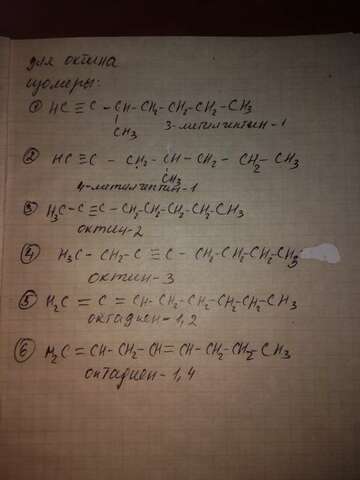 для октина
изомеры:
① HC ≡ C - CH - CH₂ - CH₂ - CH₂ - CH₃
CH₃ 3-метилгептин-1
② HC ≡ C - CH₂ - CH - CH₂ - CH₂ - CH₃
CH₃
4-метилгептин-1
③ H₃C - C ≡ C - CH₂ - CH₂ - CH₂ - CH₂ - CH₃
октин-2
④ H₃C - CH₂ - C ≡ C - CH₂ - CH₂ - CH₂ - CH₃
октин-3
⑤ H₂C = C = CH - CH₂ - CH₂ - CH₂ - CH₂ - CH₃
октадиен-1,2
⑥ H₂C = CH - CH₂ - CH = CH - CH₂ - CH₂ - CH₃
октадиен-1,4